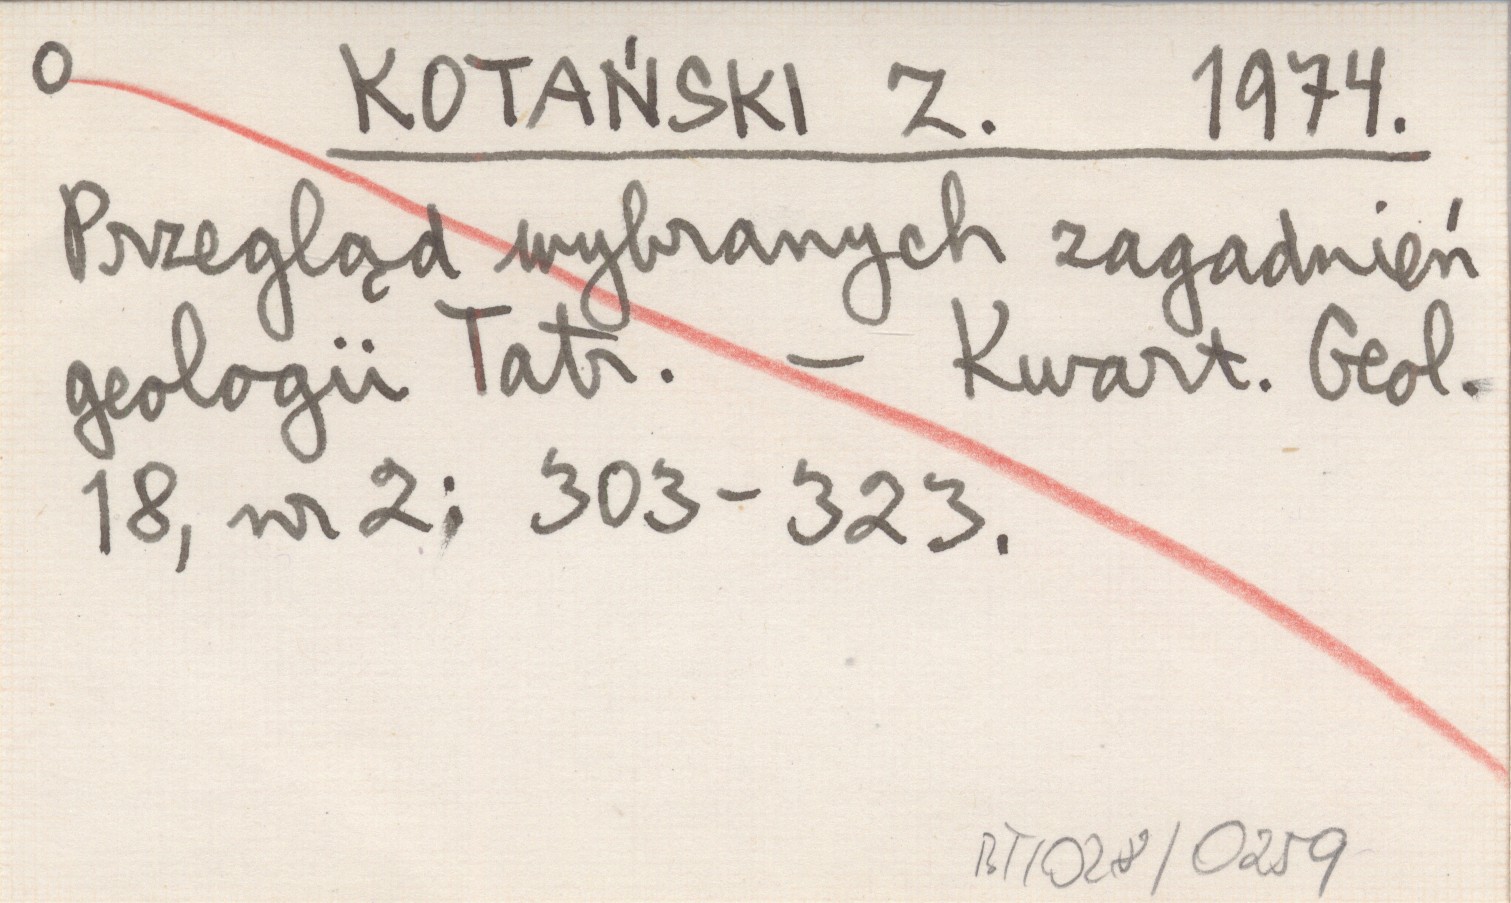 O KOTAŃSKI Z. 1974.
Przegląd wybranych zagadnień
geologii Tatr. – Kwart. Geol.
18, nr 2; 303-323.
BT/028/0259